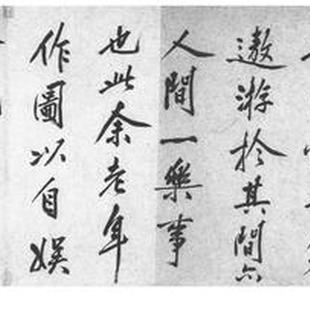 遨游於其間六
人間一樂事
也此余老年
作圖以自娱